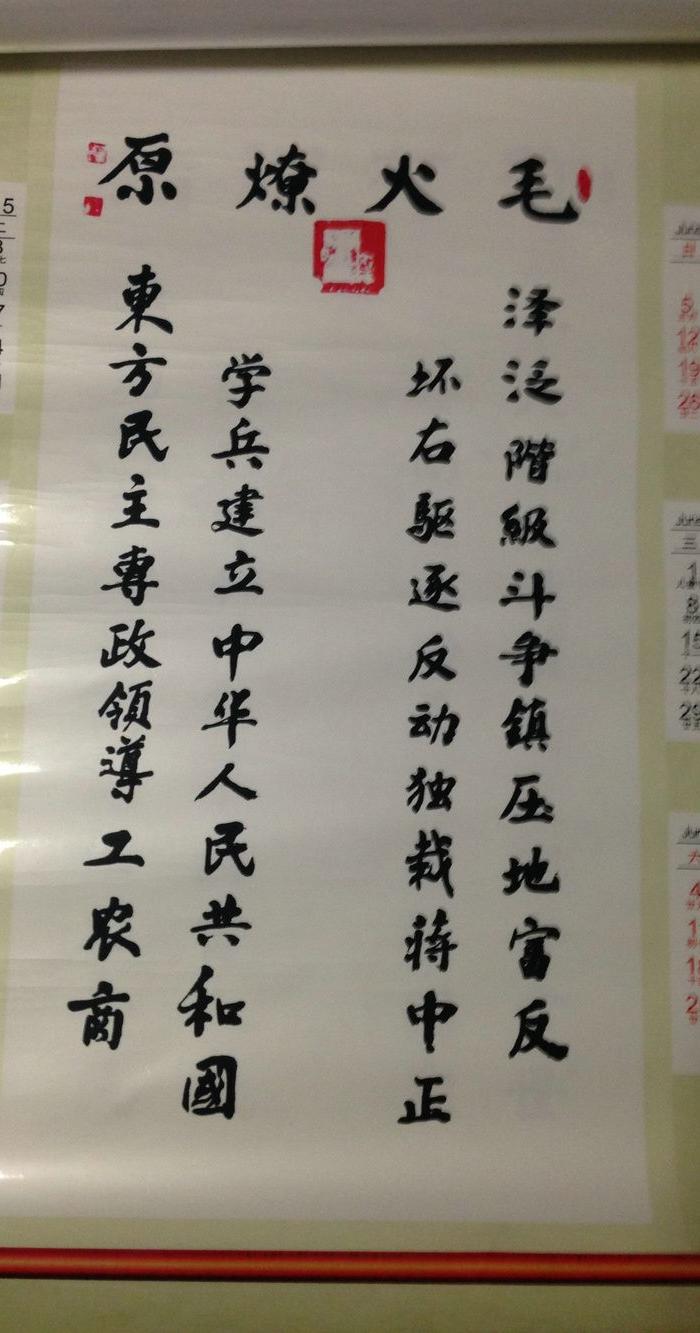 毛火燎原
泽泛階級斗争鎮压地富反
坏右驅逐反动独裁蒋中正
学兵建立中华人民共和國
東方民主專政領導工农商